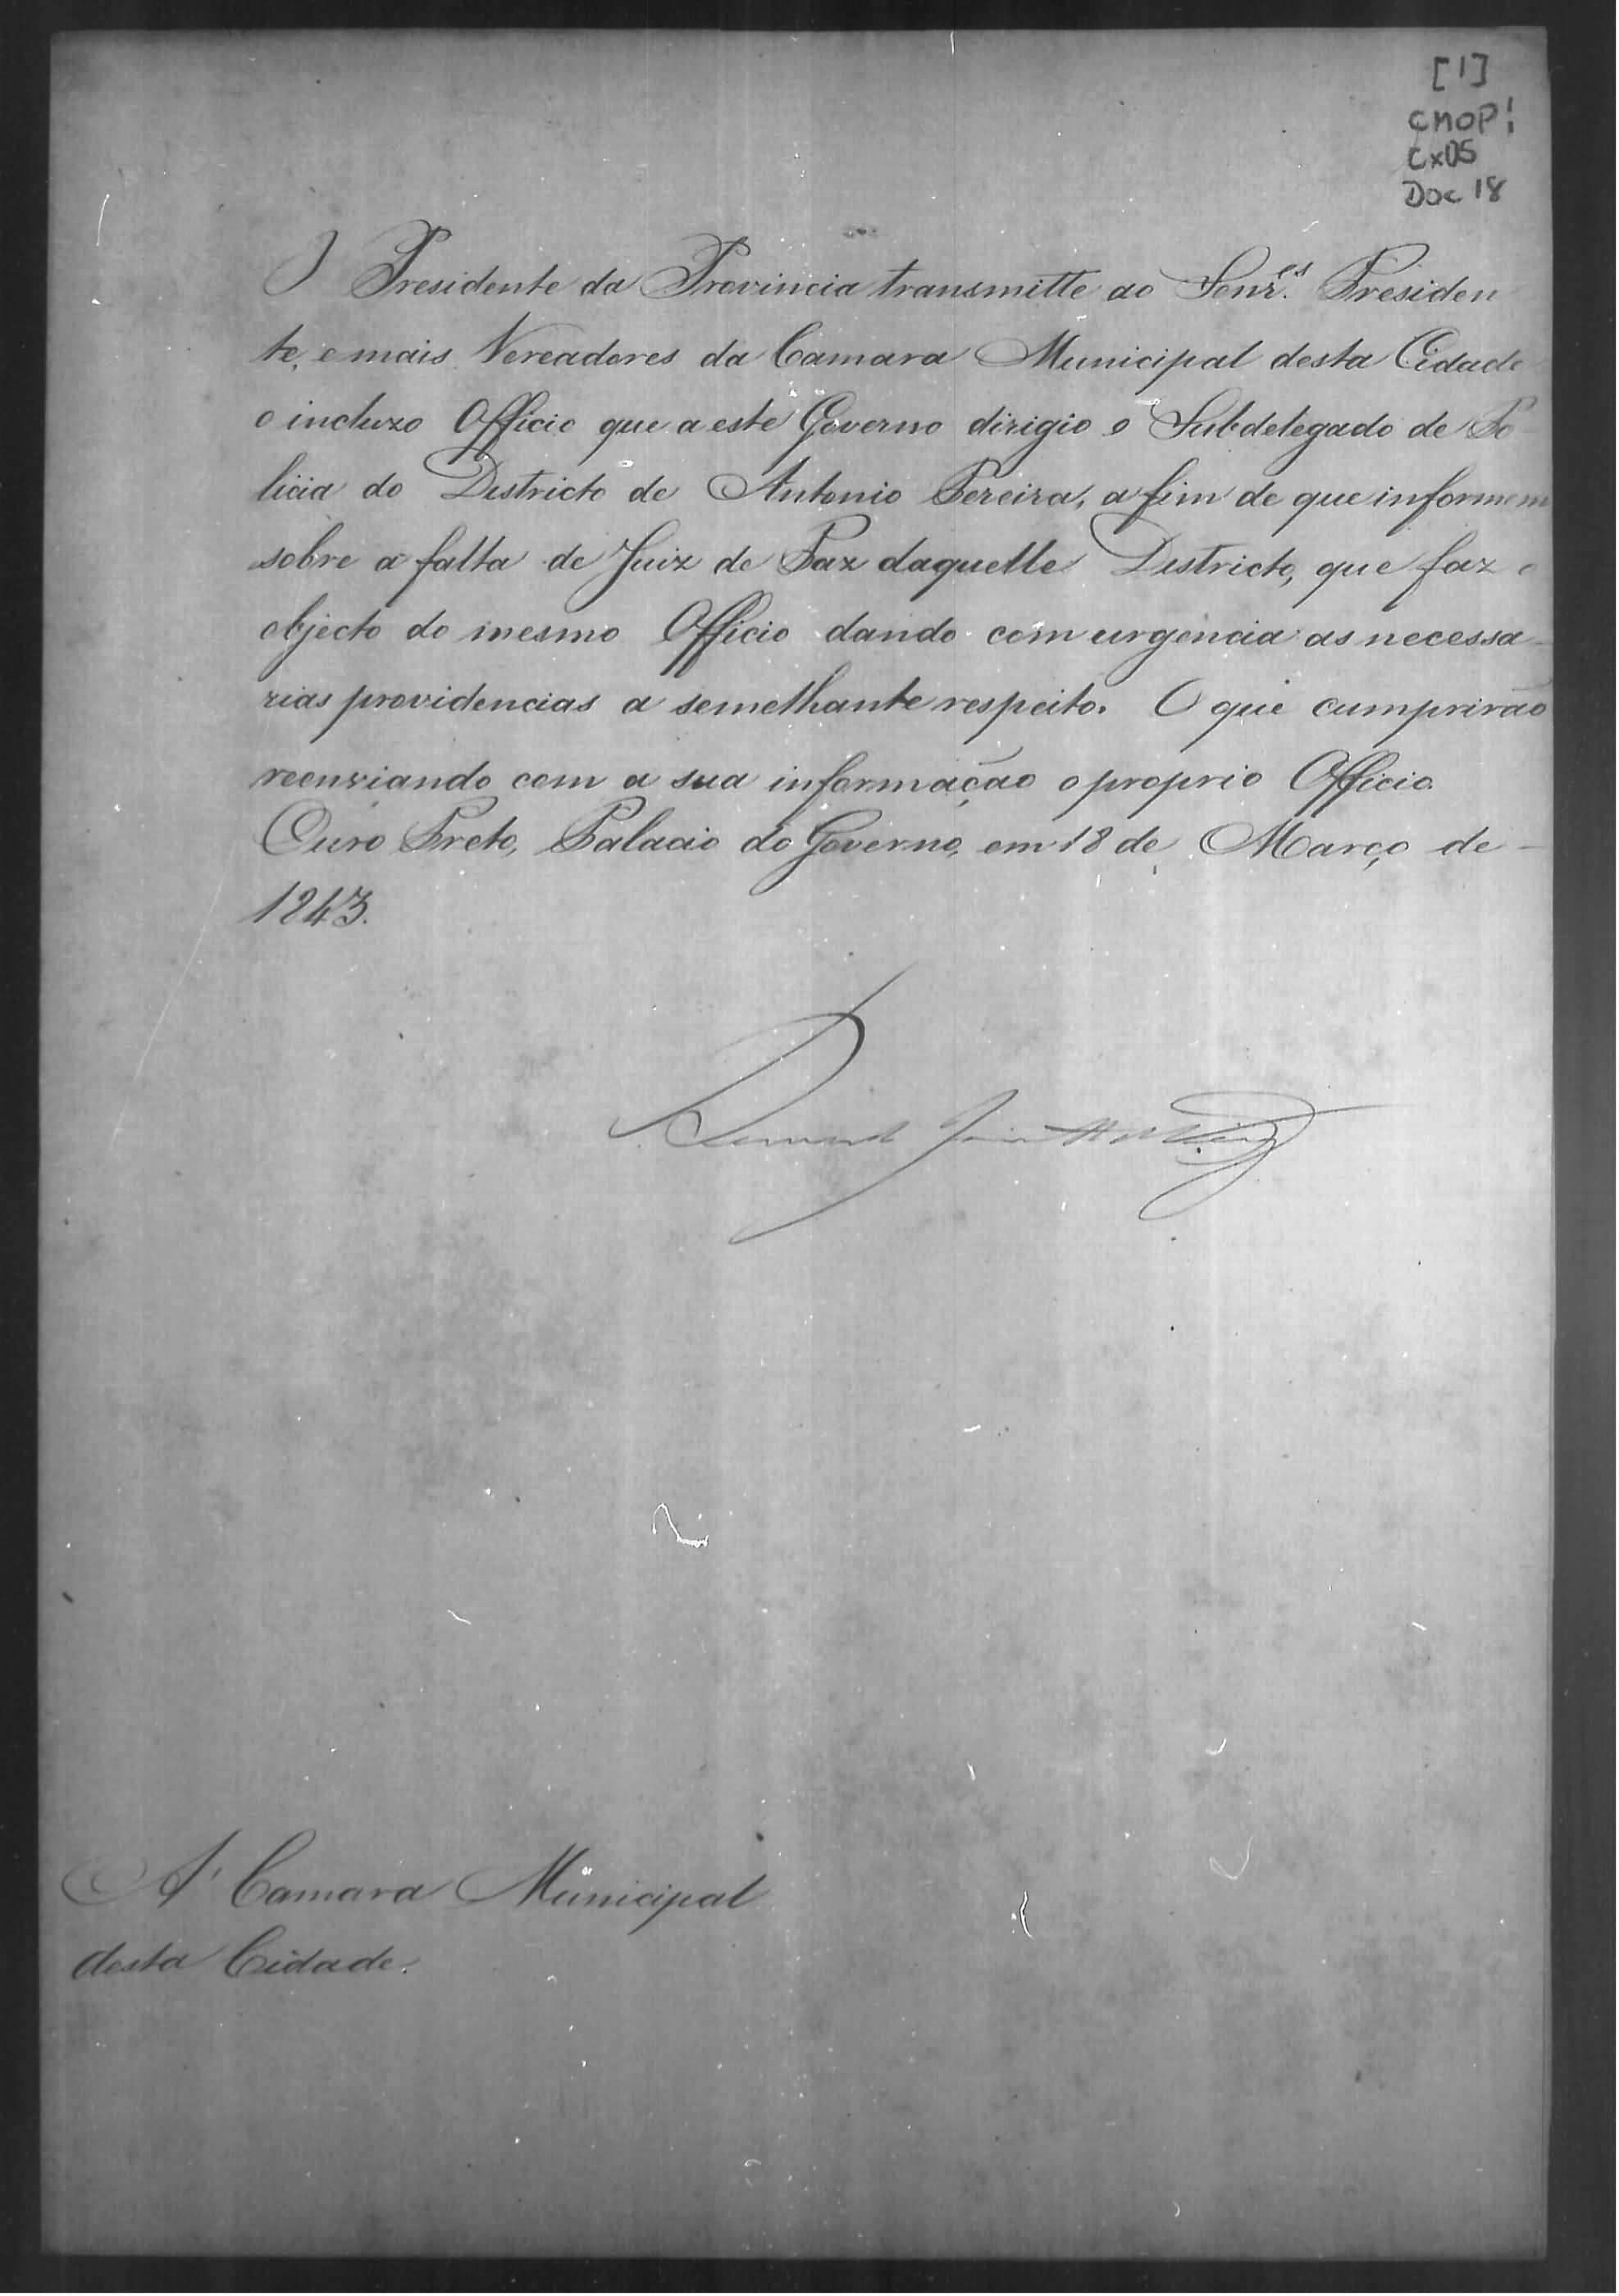 [1]
CMOP
Cx05
Doc 18
O Presidente da Provincia transmitte ao Senr.es Presiden
te, e mais Vereadores da Camara Municipal desta Cidade
o incluzo Officio que a este Governo dirigio o Subdelegado de Po
licia do Districto de Antonio Pereira, a fim de que informem
sobre a falta de Juiz de Paz daquelle Districto, que faz o
objecto do mesmo Officio dando com urgencia as necessa-
rias providencias a semelhante respeito. O que cumprirão
reenviando com a sua informação o proprio Officio.
Ouro Preto, Palacio do Governo, em 18 de Março de -
1843.
A' Camara Municipal
desta Cidade.